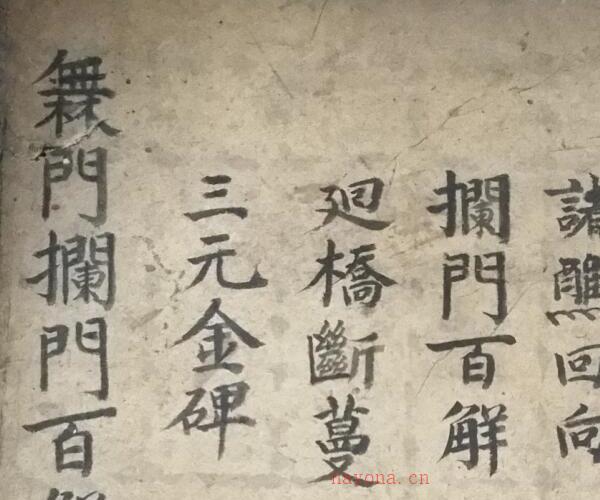 諸醮回向
攔門百解
廻橋斷蔓
三元金碑
門攔門百解
nayona.cn